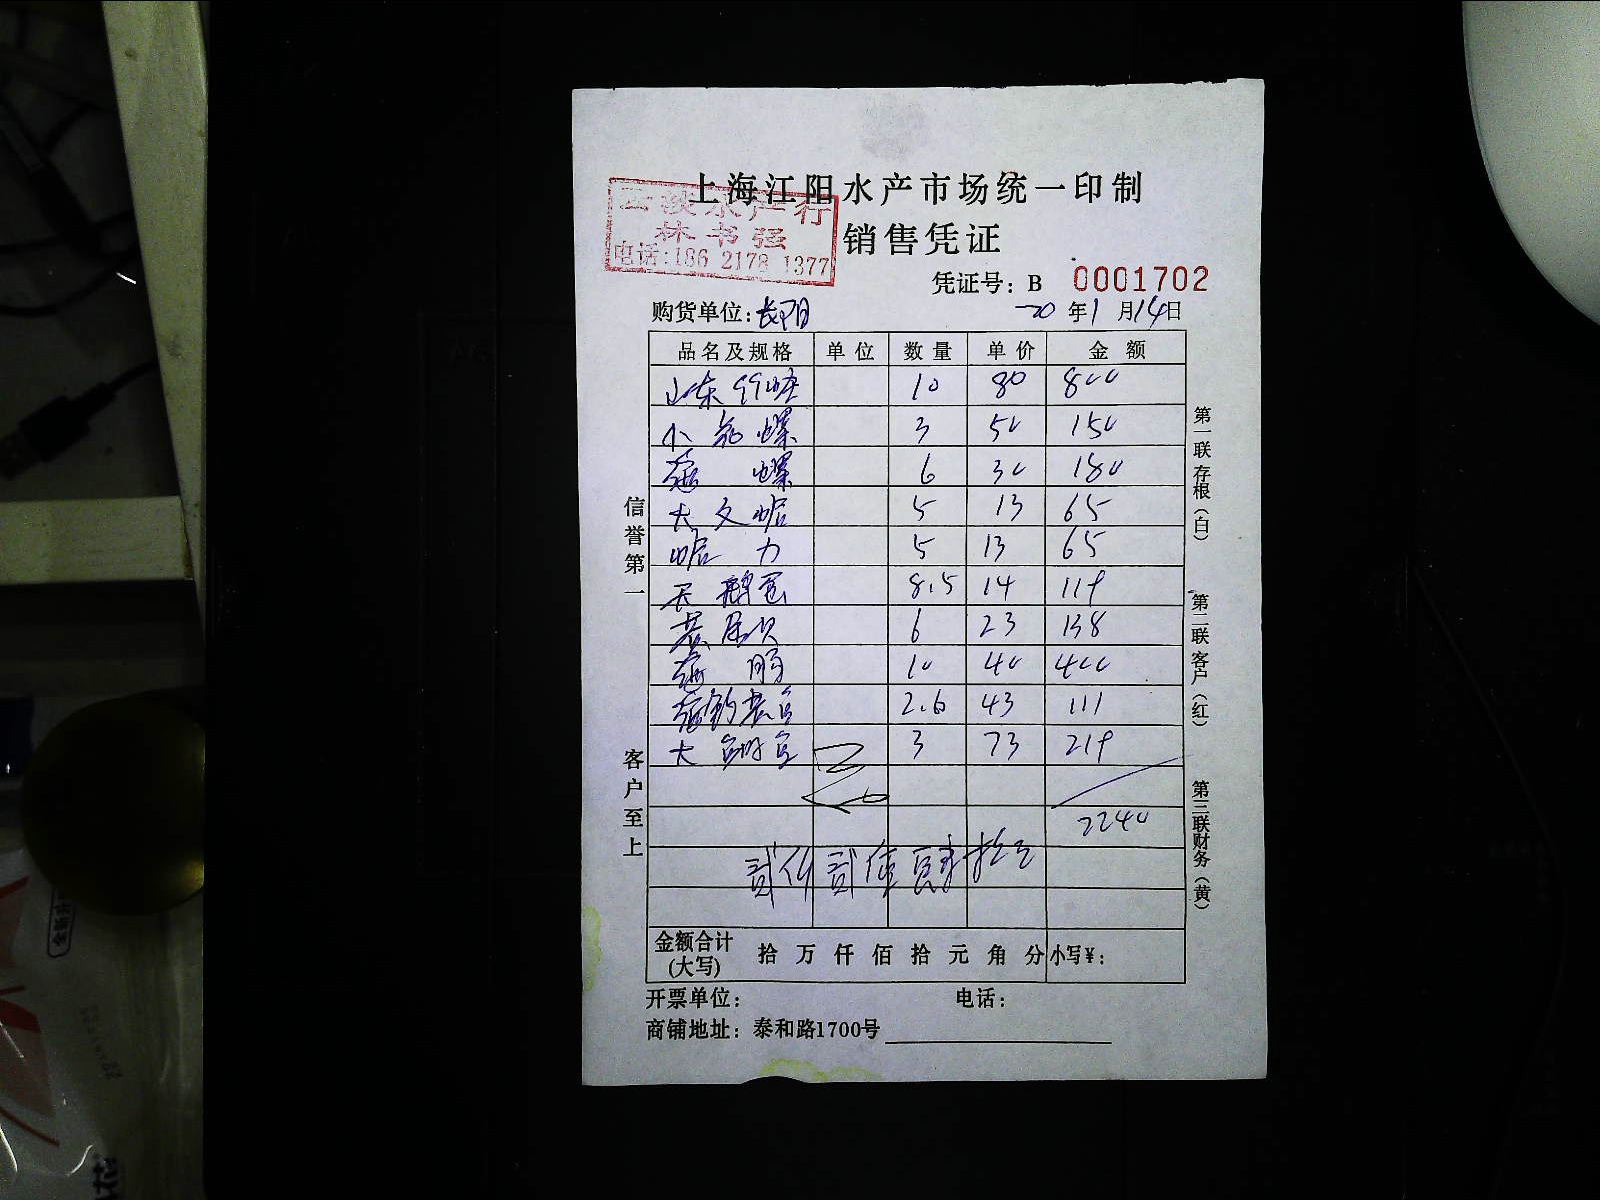 上海江阳水产市场统一印制
水产行
林书强
电话:186 2178 1377
销售凭证
凭证号: B 0001702
购货单位: 长阳 20 年 1 月 14 日
品名及规格 单位 数量 单价 金额
山东 10 80 800
小 螺 3 50 150
螺 6 30 180
大文蛤 5 13 65
蛤 力 5 13 65
天鹅蛋 8.5 14 119
6 23 138
10 40 400
2.6 43 111
大 3 73 219
2240
贰仟贰佰肆拾元
金额合计(大写) 拾 万 仟 佰 拾 元 角 分 小写¥:
开票单位: 电话:
商铺地址: 泰和路1700号
信誉第一
客户至上
第一联存根(白)
第二联客户(红)
第三联财务(黄)